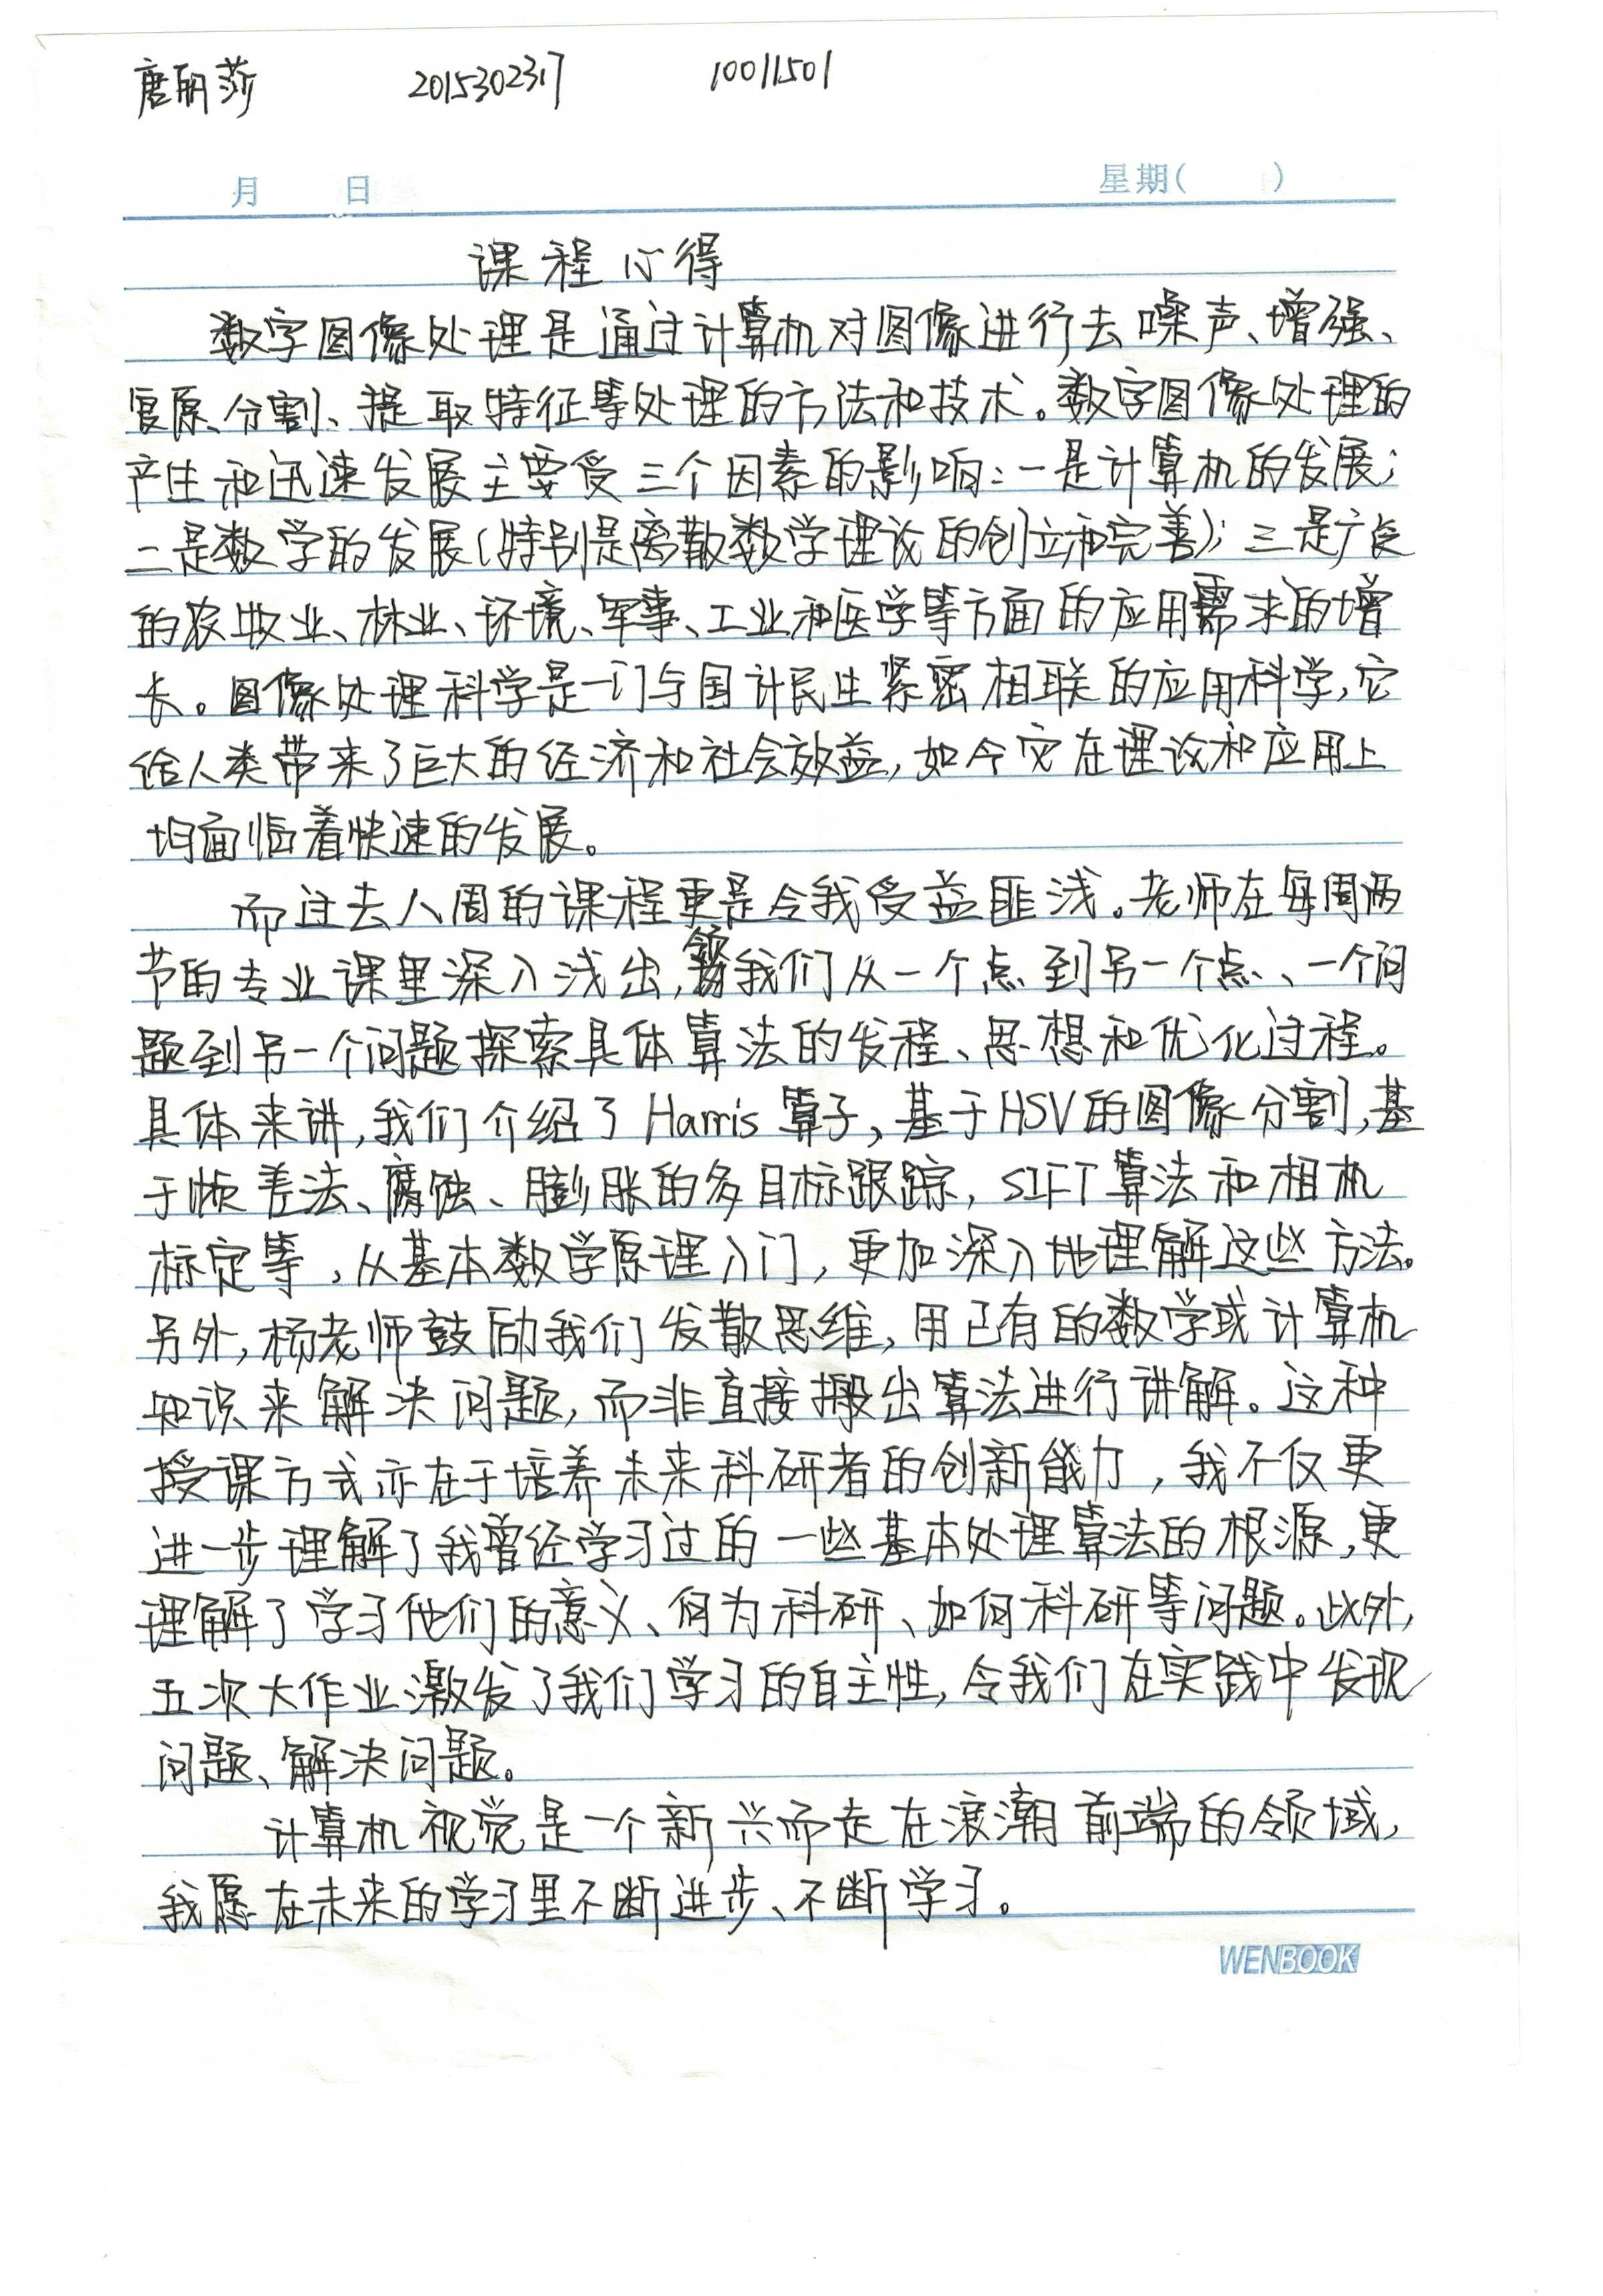 唐丽莎 2015302317 10011501
月 日 星期( )
课程心得
数字图像处理是通过计算机对图像进行去噪声、增强、
复原、分割、提取特征等处理的方法和技术。数字图像处理的
产生和迅速发展主要受三个因素的影响:一是计算机的发展;
二是数学的发展(特别是离散数学理论的创立和完善);三是广泛
的农牧业、林业、环境、军事、工业和医学等方面的应用需求的增
长。图像处理科学是一门与国计民生紧密相联的应用科学,它
给人类带来了巨大的经济和社会效益,如今它在理论和应用上
均面临着快速的发展。
而过去八周的课程更是令我受益匪浅。老师在每周两
节的专业课里深入浅出,领我们从一个点到另一个点、一个问
题到另一个问题探索具体算法的发程、思想和优化过程。
具体来讲,我们介绍了Harris算子,基于HSV的图像分割,基
于帧差法、腐蚀、膨胀的多目标跟踪,SIFT算法和相机
标定等,从基本数学原理入门,更加深入地理解这些方法。
另外,杨老师鼓励我们发散思维,用已有的数学或计算机
知识来解决问题,而非直接搬出算法进行讲解。这种
授课方式亦在于培养未来科研者的创新能力,我不仅更
进一步理解了我曾经学习过的一些基本处理算法的根源,更
理解了学习他们的意义、何为科研、如何科研等问题。此外,
五次大作业激发了我们学习的自主性,令我们在实践中发现
问题、解决问题。
计算机视觉是一个新兴而走在浪潮前端的领域,
我愿在未来的学习里不断进步、不断学习。
WENBOOK